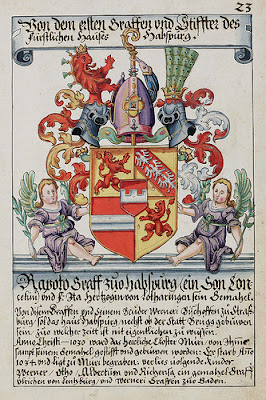 23
Von dem ersten Graffen und Stiffter des
Fürstlichen Hauses Habspurg.
Rapoto Graff zuo Habspurg (ein Son Lon
celini) und Fr. Ita Hertzogin von Lotharingen sein Gemahel.
Von disem Graffen und seinem Bruder Werner Bischoffen zu Straß
burg sol das haus Habspurg nechst ob der Statt Brugg gebuwen
sein zu welcher zeit ist nit eigentlichen zu wissen
Anno Christi 1030 ward das herliche Closter Muri von Ihme
sampt seinem Gemahel gestifft und gebuwen worden. Er starb Anno
und ligt zu Muri begraben verlies volgende Kinder
Werner Otho Albertum und Richenza, ein gemahel Graff
Ulrichen von Lentzburg, und Werner Graffen zuo Baden.